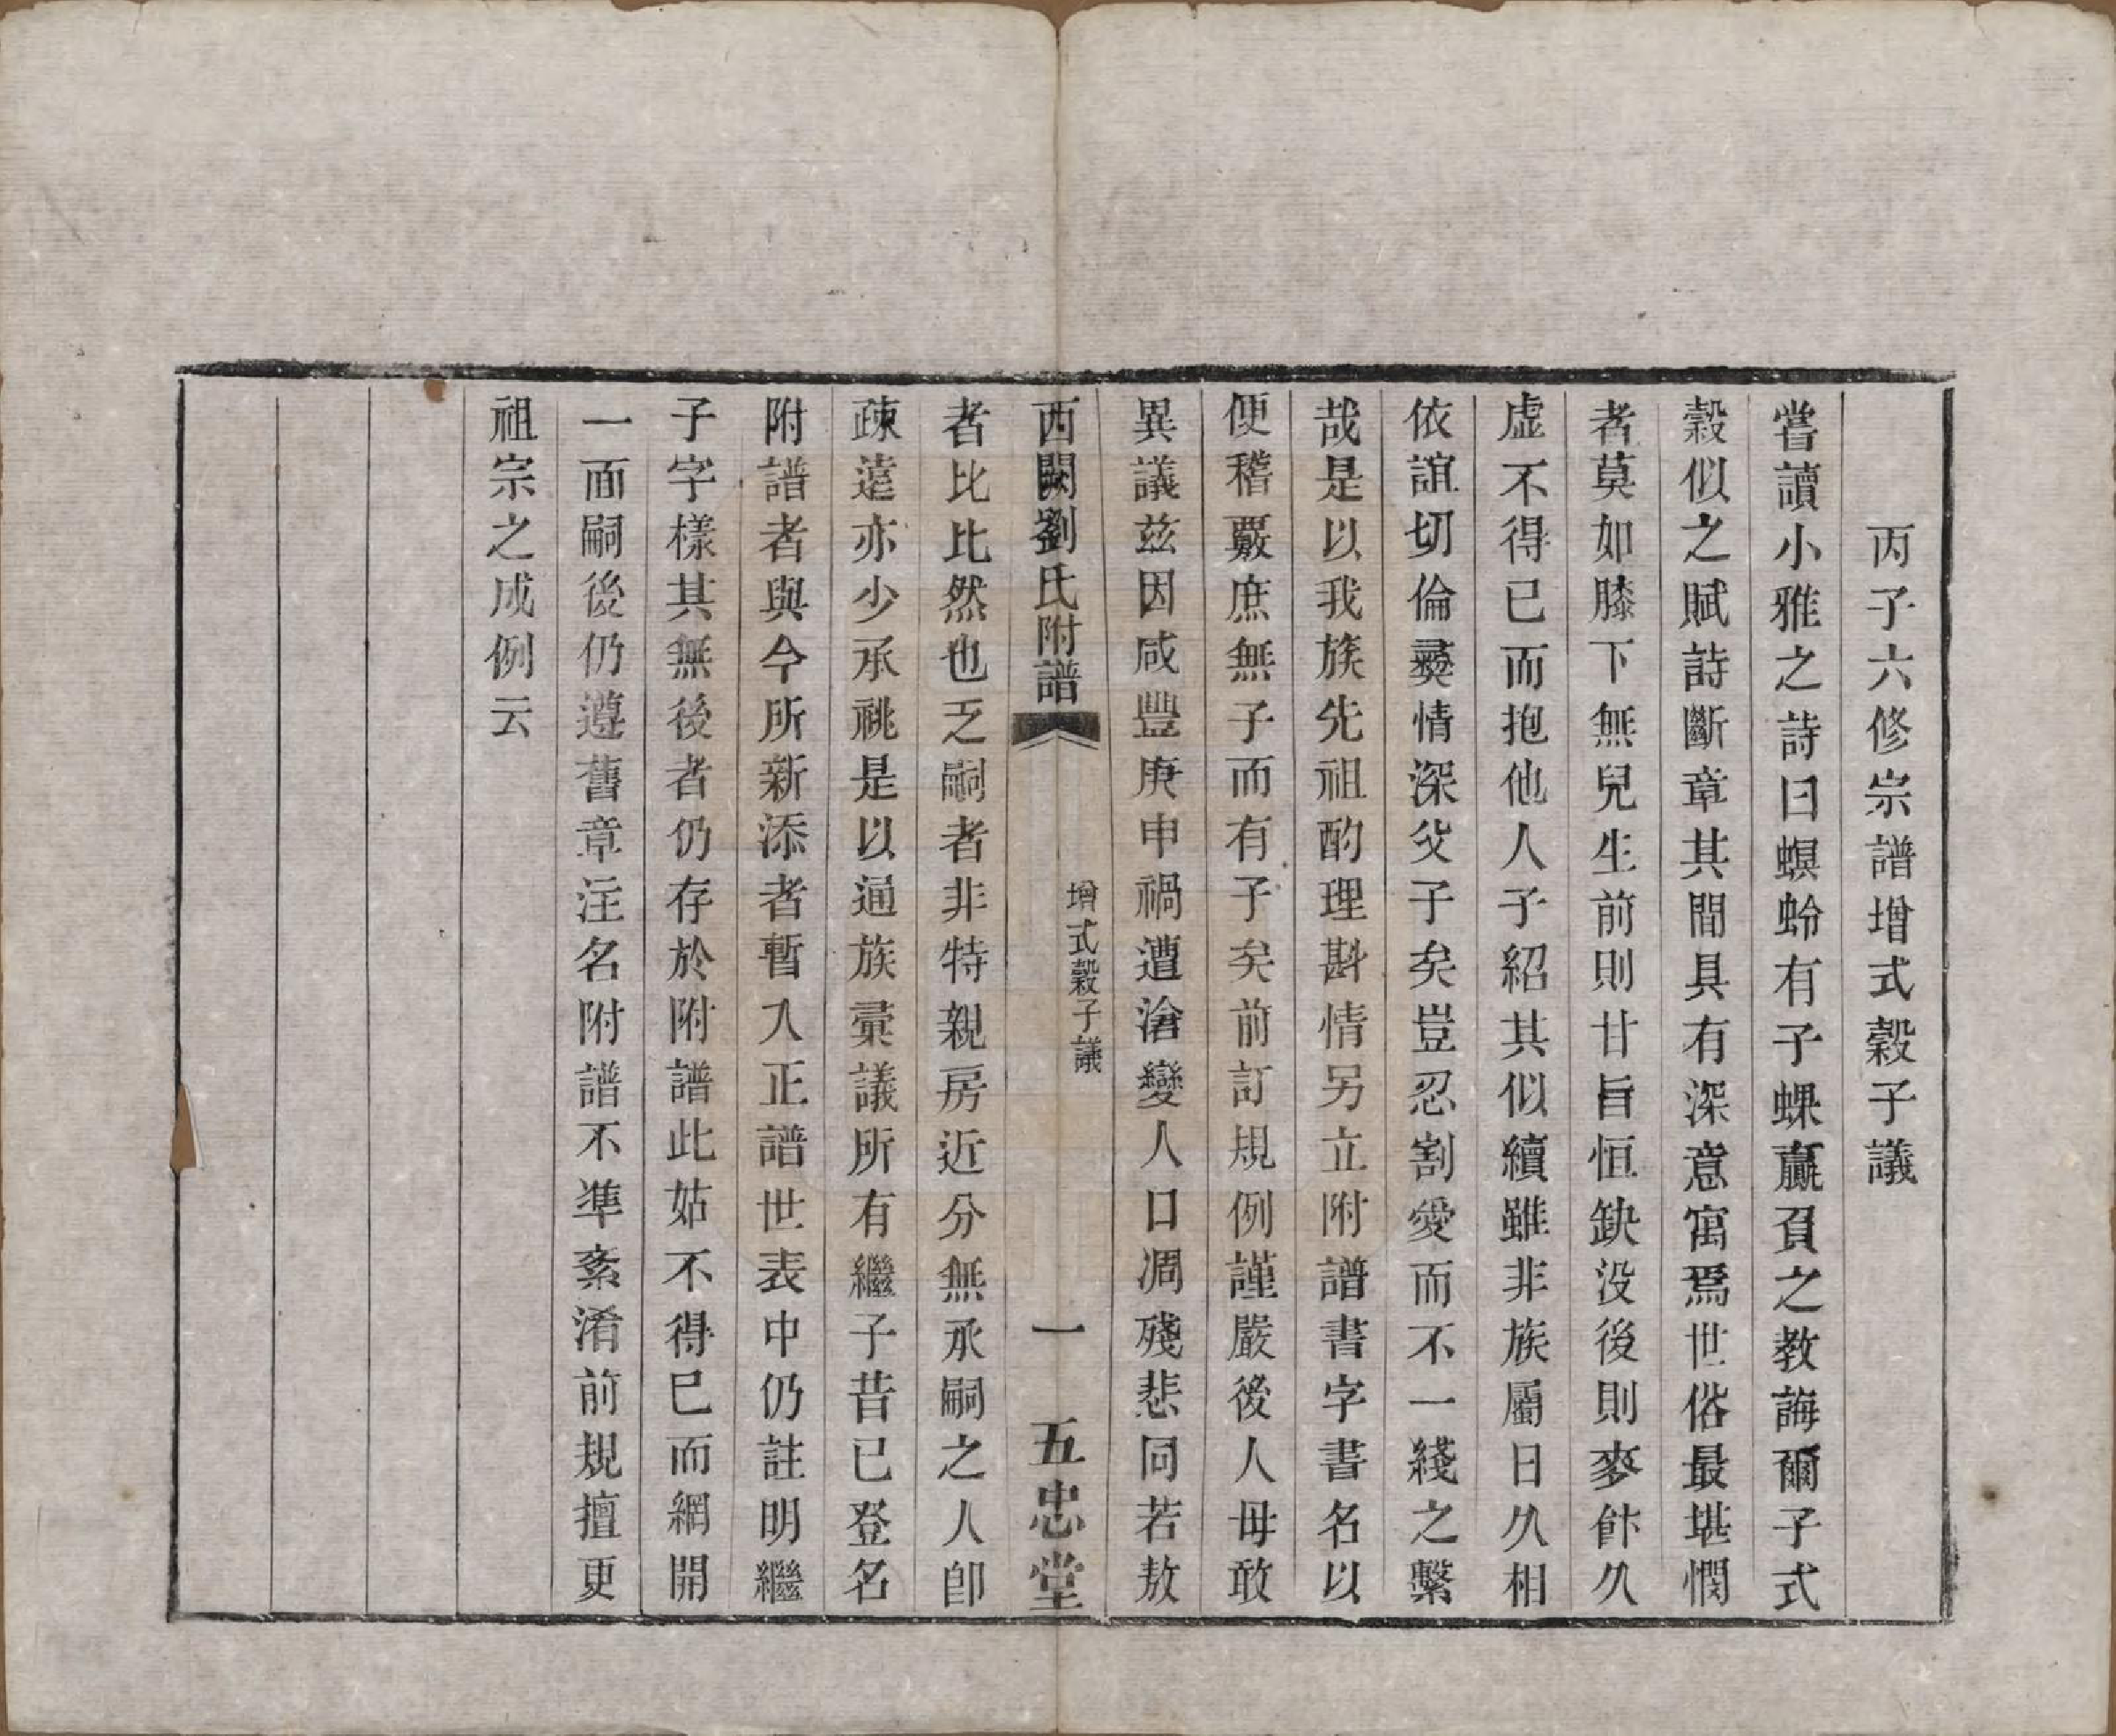 丙子六修宗譜增式穀子議
嘗讀小雅之詩曰螟蛉有子蜾蠃負之教誨爾子式
穀似之賦詩斷章其間具有深意寓焉世俗最堪憫
者莫如膝下無兒生前則甘旨恒缺没後則麥飰久
虛不得已而抱他人子紹其似續雖非族屬日久相
依誼切倫彞情深父子矣豈忍割愛而不一綫之繫
哉是以我族先祖酌理斟情另立附譜書字書名以
便稽覈庶無子而有子矣前訂規例謹嚴後人毋敢
異議玆因咸豐庚申禍遭滄變人口凋殘悲同若敖
西關劉氏附譜
增式穀子議
一
五忠堂
者比比然也乏嗣者非特親房近分無承嗣之人卽
疎遠亦少承祧是以通族彙議所有繼子昔已登名
附譜者與今所新添者暫入正譜世表中仍註明繼
子字樣其無後者仍存於附譜此姑不得已而網開
一面嗣後仍遵舊章注名附譜不準紊淆前規擅更
祖宗之成例云